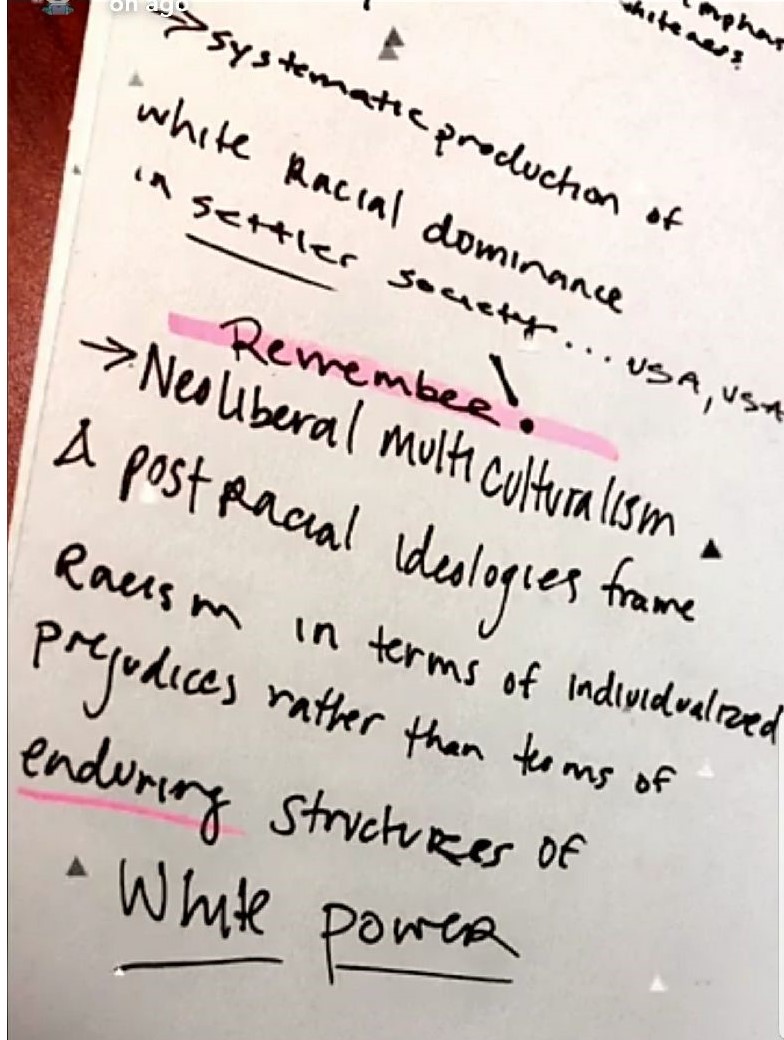 on ago
whiteness
→systematic production of
white Racial dominance
in settler society... USA, USA
Remember!
→Neoliberal multiculturalism
& postracial ideologies frame
Racism in terms of individualized
prejudices rather than terms of
enduring structures of
White power